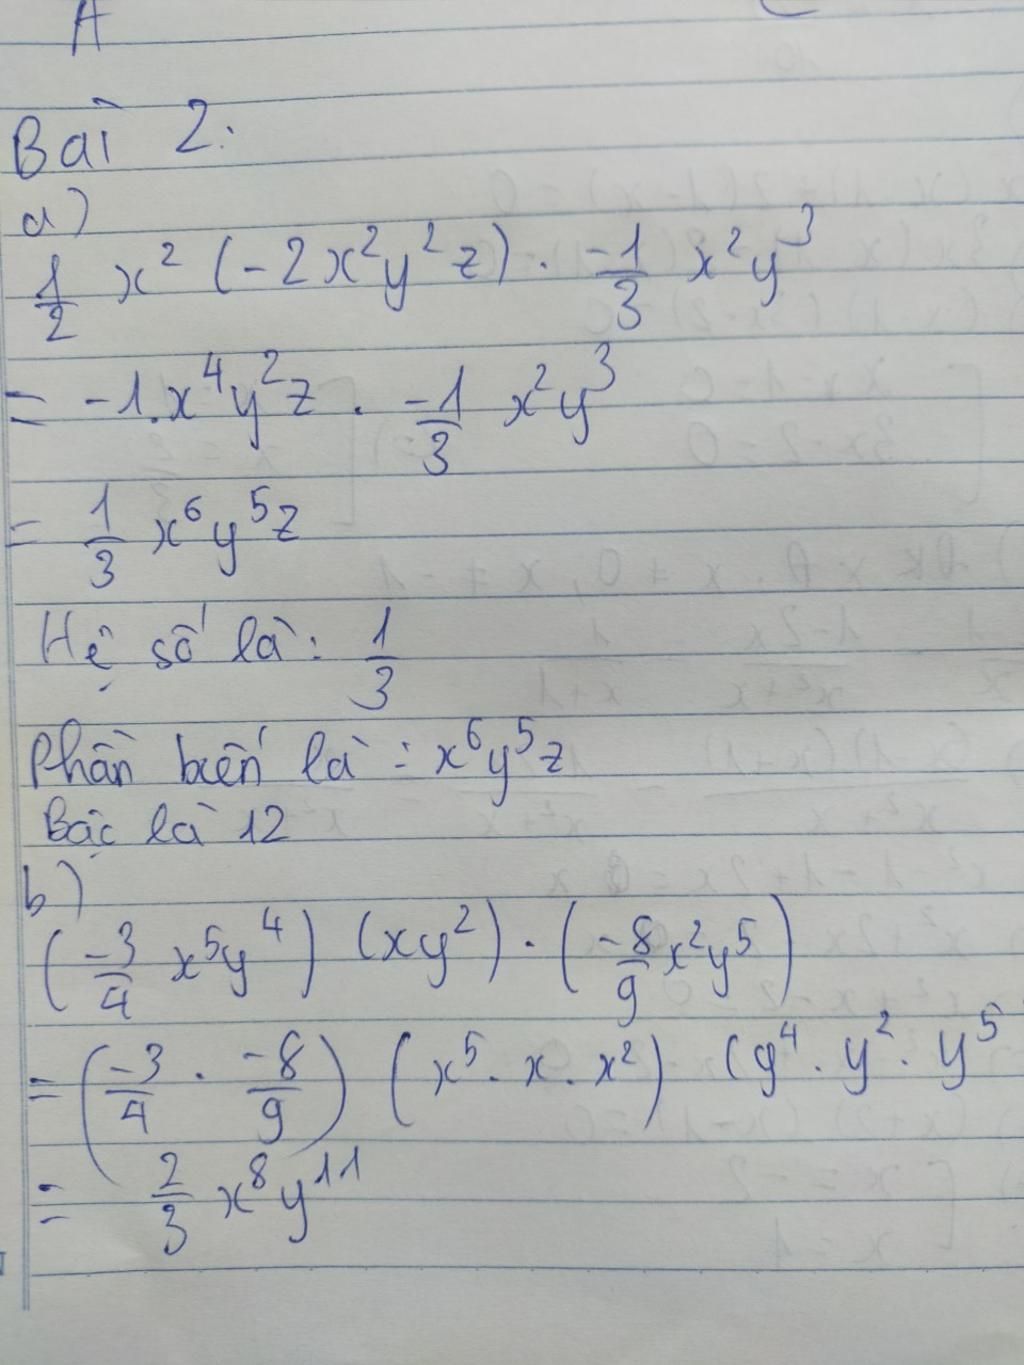 A
Bài 2:
a)
1/2 x² (-2x²y²z) . -1/3 x²y³
= -1.x⁴y²z . -1/3 x²y³
= 1/3 x⁶y⁵z
Hệ số là: 1/3
Phần biến là: x⁶y⁵z
Bậc là 12
b)
(-3/4 x⁵y⁴) (xy²) . (-8/9 x²y⁵)
= (-3/4 . -8/9) (x⁵ . x . x²) (y⁴ . y² . y⁵
= 2/3 x⁸y¹¹